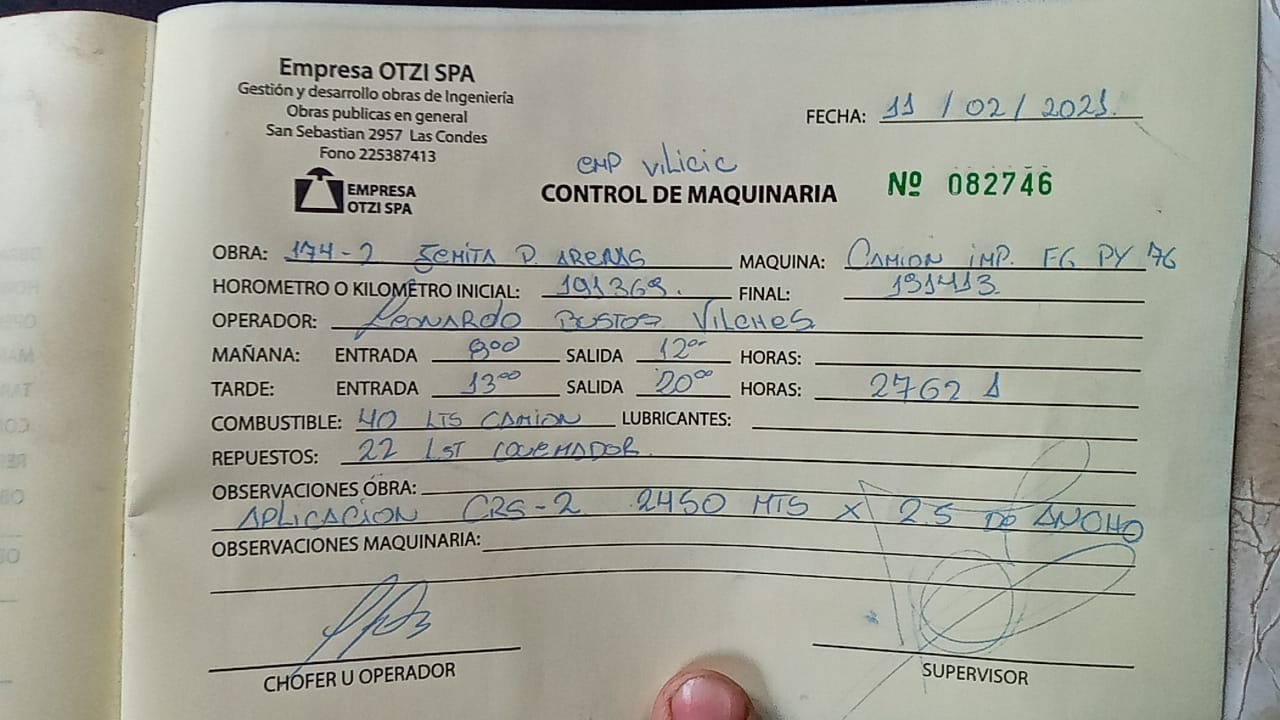 Empresa OTZI SPA
Gestión y desarrollo obras de Ingeniería
Obras publicas en general
San Sebastian 2957 Las Condes
Fono 225387413
EMPRESA
OTZI SPA
FECHA: 11 / 02 / 2021.
EMP VILICIC
CONTROL DE MAQUINARIA
Nº 082746
OBRA: 174-2 SEMITA P. ARENAS MAQUINA: CAMION IMP. FG PY 76
HOROMETRO O KILOMETRO INICIAL: 191369. FINAL: 191413.
OPERADOR: LEONARDO BUSTOS VILCHES
MAÑANA: ENTRADA 8⁰⁰ SALIDA 12⁰⁰ HORAS:
TARDE: ENTRADA 13⁰⁰ SALIDA 20⁰⁰ HORAS: 2762
COMBUSTIBLE: 40 LTS CAMION LUBRICANTES:
REPUESTOS: 22 LST
OBSERVACIONES OBRA:
APLICACION CRS-2 2450 MTS X 2.5 DE ANCHO
OBSERVACIONES MAQUINARIA:
CHOFER U OPERADOR
SUPERVISOR